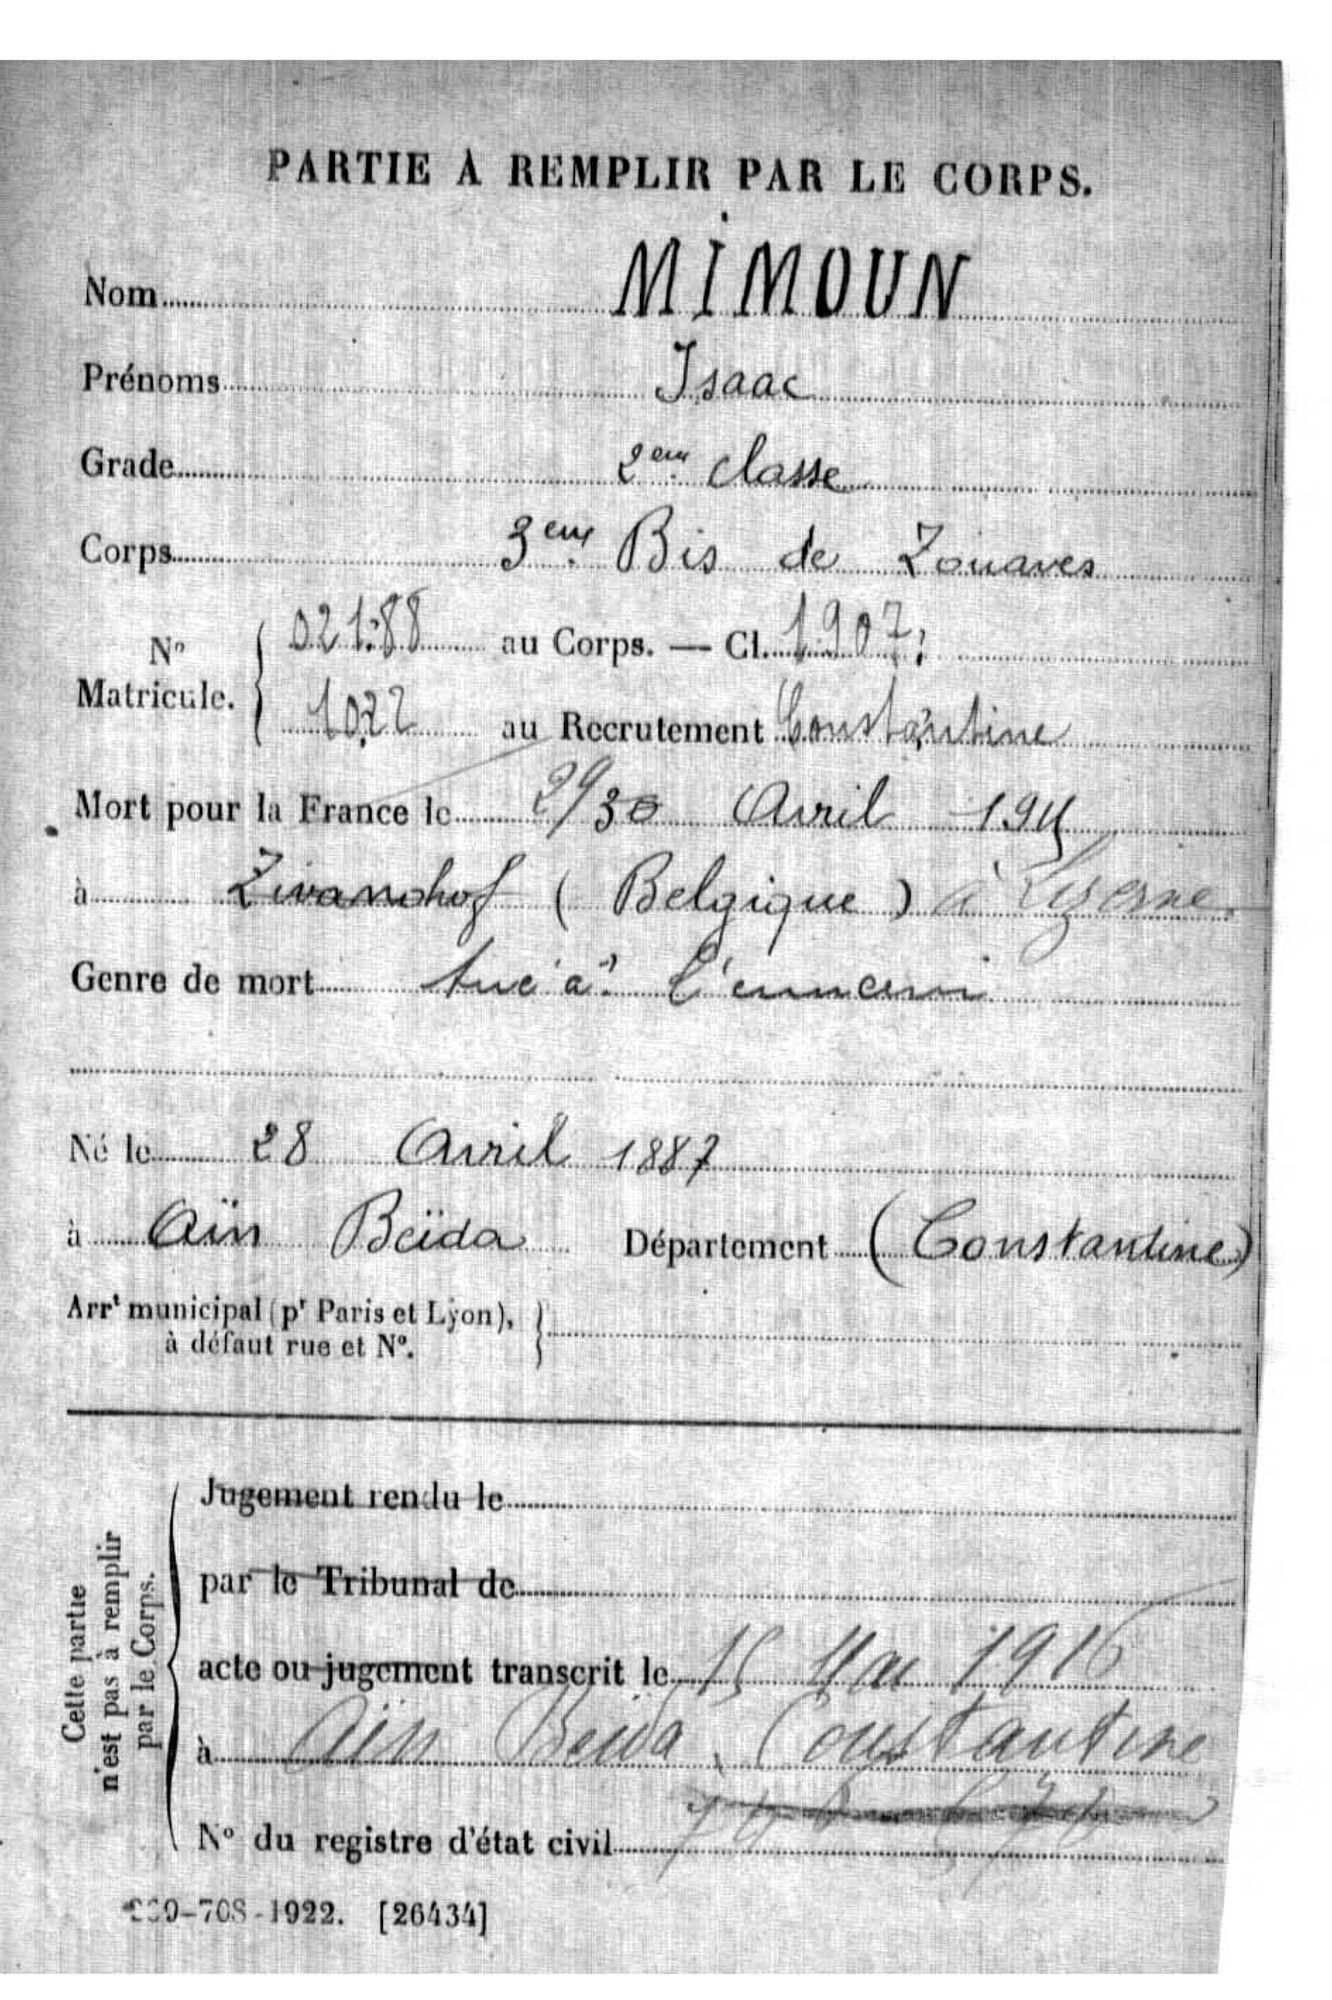 PARTIE À REMPLIR PAR LE CORPS.
Nom MIMOUN
Prénoms Isaac
Grade 2eme classe
Corps 3eme Bis de Zouaves
No Matricule. 02188 au Corps. — Cl. 1907
1022 au Recrutement Constantine
Mort pour la France le 29/30 Avril 1915
à Zivanohof (Belgique) à Lizerne.
Genre de mort tué à l'ennemi
Né le 28 Avril 1887
à Aïn Beïda Département (Constantine)
Arrt municipal (pr Paris et Lyon),
à défaut rue et No.
Cette partie
n'est pas à remplir
par le Corps.
Jugement rendu le
par le Tribunal de
acte ou jugement transcrit le 15 Mai 1916
à Aïn Beïda, Constantine
No du registre d'état civil
-708-1922. [26434]